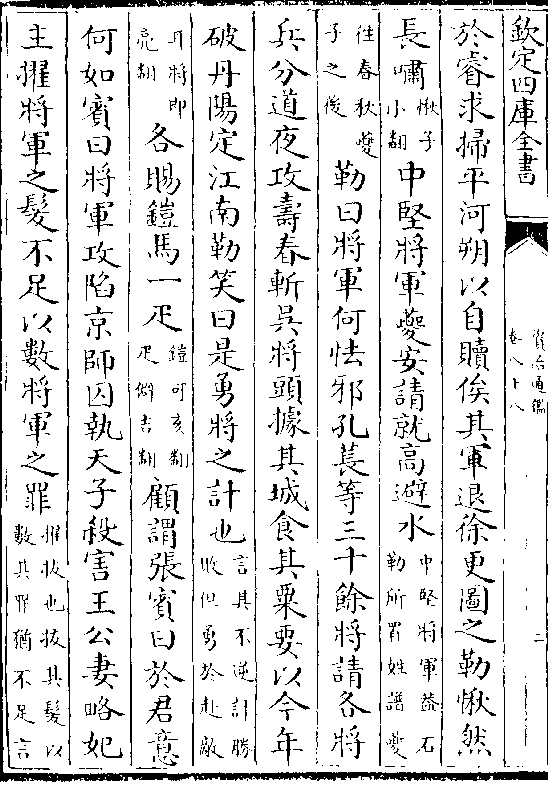 欽定四庫全書
資治通鑑
卷八十八
二
於睿求掃平河朔以自贖俟其軍退徐更圖之勒愀然
長嘯愀子小翻中堅將軍夔安請就高避水中堅將軍葢石勒所置姓譜夔
往春秋夔子之後勒曰將軍何怯邪孔萇等三十餘將請各將
兵分道夜攻壽春斬吳將頭據其城食其粟要以今年
破丹陽定江南勒笑曰是勇將之計也言其不逆計勝敗但勇於赴敵
幷將即亮翻各賜鎧馬一疋鎧可亥翻疋僻吉翻顧謂張賓曰於君意
何如賓曰將軍攻陷京師囚執天子殺害王公妻略妃
主擢將軍之髮不足以數將軍之罪擢拔也拔其髮以數其罪猶不足言